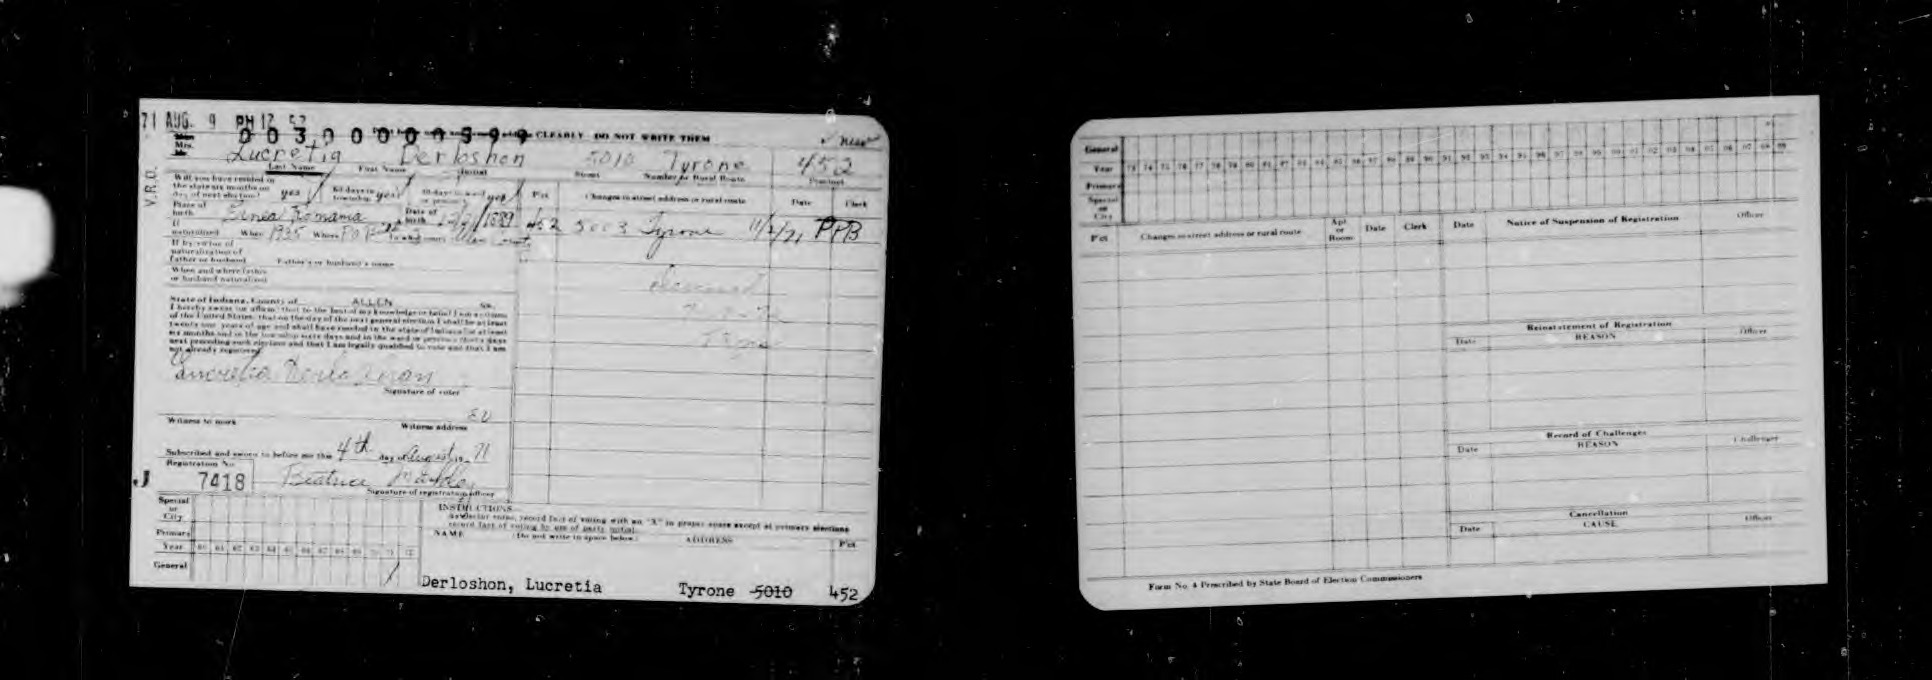 71 AUG. 9 PM 12 53
0030000599
CLEARLY DO NOT WRITE THEM
Mrs. Lucretia Derloshon 5010 Tyrone 452
Last Name First Name Initial Street Number or Rural Route Precinct
V.R.D.
Will you have resided in
the state six months on
day of next election? yes 60 days in township yes 30 days in ward or precinct yes P'ct Changes in street address or rural route Date Clerk
Place of
birth Romania Date of birth 1889 452 5003 Tyrone 11/2/71 PPB
If
naturalized When 1935 Where
If by virtue of
naturalization of
father or husband Father's or husband's name
When and where father
or husband naturalized
deceased
State of Indiana, County of ALLEN ss.
I hereby swear (or affirm) that to the best of my knowledge or belief I am a citizen
of the United States, that on the day of the next general election I shall be at least
twenty-one years of age and shall have resided in the state of Indiana for at least
six months and in the township sixty days and in the ward or precinct thirty days
next preceding such election and that I am legally qualified to vote and that I am
not already registered.
Lucretia Derloshon
Signature of voter
Witness to mark Witness address
Subscribed and sworn to before me this 4th day of August 19 71
Registration No.
J 7418 Beatrice
Signature of registration officer
Special
or
City
Primary
Year 60 61 62 63 64 65 66 67 68 69 70 71 72
General
INSTRUCTIONS
As elector votes, record fact of voting with an "X" in proper space except at primary elections
record fact of voting by use of party initial.
NAME (Do not write in space below.) ADDRESS P'ct
Derloshon, Lucretia Tyrone 5010 452
General
Year 73 74 75 76 77 78 79 80 81 82 83 84 85 86 87 88 89 90 91 92 93 94 95 96 97 98 99
Primary
Special
or
City
P'ct Changes in street address or rural route Apt. or Room Date Clerk
Date Notice of Suspension of Registration Officer
Reinstatement of Registration
Date REASON Officer
Record of Challenges
Date REASON Challenger
Cancellation
Date CAUSE Officer
Form No. 4 Prescribed by State Board of Election Commissioners